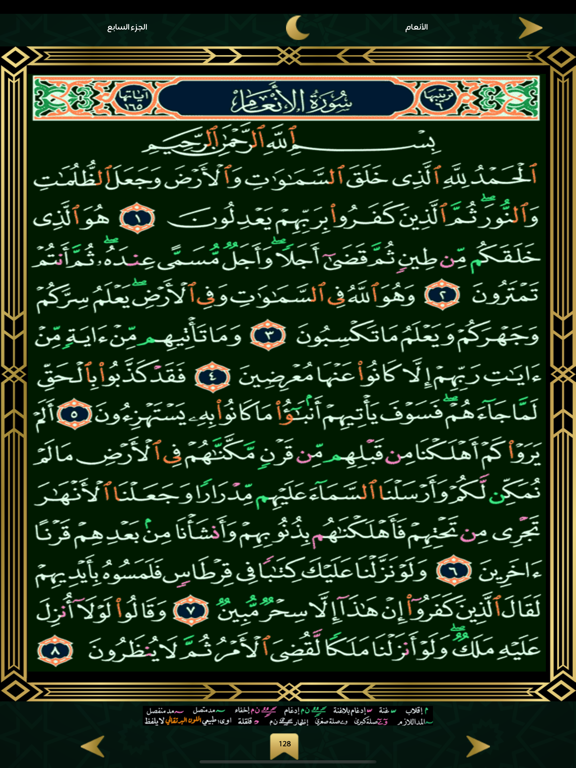 الجزء السابع
الأنعام
ترتيبها ٦ سُورَةُ الأَنْعَامِ آياتها ١٦٥
بِسْمِ ٱللَّهِ ٱلرَّحْمَٰنِ ٱلرَّحِيمِ
ٱلْحَمْدُ لِلَّهِ ٱلَّذِى خَلَقَ ٱلسَّمَٰوَٰتِ وَٱلْأَرْضَ وَجَعَلَ ٱلظُّلُمَٰتِ
وَٱلنُّورَ ۖ ثُمَّ ٱلَّذِينَ كَفَرُوا۟ بِرَبِّهِمْ يَعْدِلُونَ ١ هُوَ ٱلَّذِى
خَلَقَكُم مِّن طِينٍ ثُمَّ قَضَىٰٓ أَجَلًا ۖ وَأَجَلٌ مُّسَمًّى عِندَهُۥ ۖ ثُمَّ أَنتُمْ
تَمْتَرُونَ ٢ وَهُوَ ٱللَّهُ فِى ٱلسَّمَٰوَٰتِ وَفِى ٱلْأَرْضِ ۖ يَعْلَمُ سِرَّكُمْ
وَجَهْرَكُمْ وَيَعْلَمُ مَا تَكْسِبُونَ ٣ وَمَا تَأْتِيهِم مِّنْ ءَايَةٍ مِّنْ
ءَايَٰتِ رَبِّهِمْ إِلَّا كَانُوا۟ عَنْهَا مُعْرِضِينَ ٤ فَقَدْ كَذَّبُوا۟ بِٱلْحَقِّ
لَمَّا جَآءَهُمْ ۖ فَسَوْفَ يَأْتِيهِمْ أَنۢبَٰٓؤُا۟ مَا كَانُوا۟ بِهِۦ يَسْتَهْزِءُونَ ٥ أَلَمْ
يَرَوْا۟ كَمْ أَهْلَكْنَا مِن قَبْلِهِم مِّن قَرْنٍ مَّكَّنَّٰهُمْ فِى ٱلْأَرْضِ مَا لَمْ
نُمَكِّن لَّكُمْ وَأَرْسَلْنَا ٱلسَّمَآءَ عَلَيْهِم مِّدْرَارًا وَجَعَلْنَا ٱلْأَنْهَٰرَ
تَجْرِى مِن تَحْتِهِمْ فَأَهْلَكْنَٰهُم بِذُنُوبِهِمْ وَأَنشَأْنَا مِنۢ بَعْدِهِمْ قَرْنًا
ءَاخَرِينَ ٦ وَلَوْ نَزَّلْنَا عَلَيْكَ كِتَٰبًا فِى قِرْطَاسٍ فَلَمَسُوهُ بِأَيْدِيهِمْ
لَقَالَ ٱلَّذِينَ كَفَرُوٓا۟ إِنْ هَٰذَآ إِلَّا سِحْرٌ مُّبِينٌ ٧ وَقَالُوا۟ لَوْلَآ أُنزِلَ
عَلَيْهِ مَلَكٌ ۖ وَلَوْ أَنزَلْنَا مَلَكًا لَّقُضِىَ ٱلْأَمْرُ ثُمَّ لَا يُنظَرُونَ ٨
م إقلاب غنة إدغام بلاغنة ن م إدغام ن م إخفاء مد متصل مد منفصل
المد اللازم صلة كبرى صلة صغرى إظهار ن م قلقلة او ى: طبيعي اللون البرتقالي لا يلفظ
128